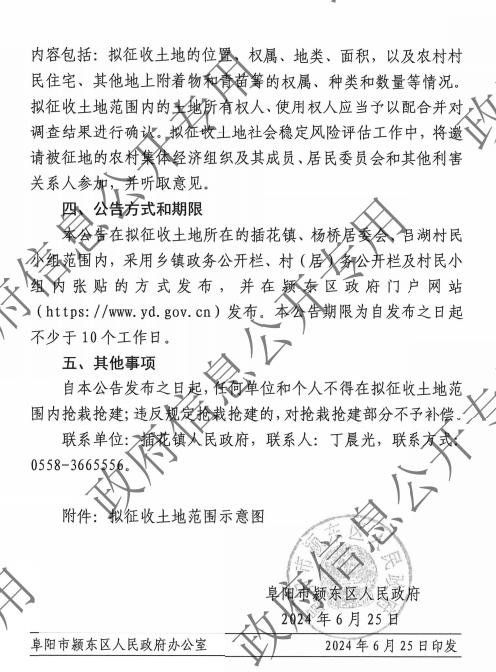 内容包括：拟征收土地的位置、权属、地类、面积，以及农村村
民住宅、其他地上附着物和青苗等的权属、种类和数量等情况。
拟征收土地范围内的土地所有权人、使用权人应当予以配合并对
调查结果进行确认。拟征收土地社会稳定风险评估工作中，将邀
请被征地的农村集体经济组织及其成员、居民委员会和其他利害
关系人参加，并听取意见。
四、公告方式和期限
本公告在拟征收土地所在的插花镇、杨桥居委会、吕湖村民
小组范围内，采用乡镇政务公开栏、村（居）务公开栏及村民小
组内张贴的方式发布，并在颍东区政府门户网站
（https://www.yd.gov.cn）发布。本公告期限为自发布之日起
不少于10个工作日。
五、其他事项
自本公告发布之日起，任何单位和个人不得在拟征收土地范
围内抢栽抢建；违反规定抢栽抢建的，对抢栽抢建部分不予补偿。
联系单位：插花镇人民政府，联系人：丁晨光，联系方式：
0558-3665556。
附件：拟征收土地范围示意图
阜阳市颍东区人民政府
2024年6月25日
阜阳市颍东区人民政府办公室 2024年6月25日印发
政府信息公开专用
政府信息公开专用
政府信息公开专用